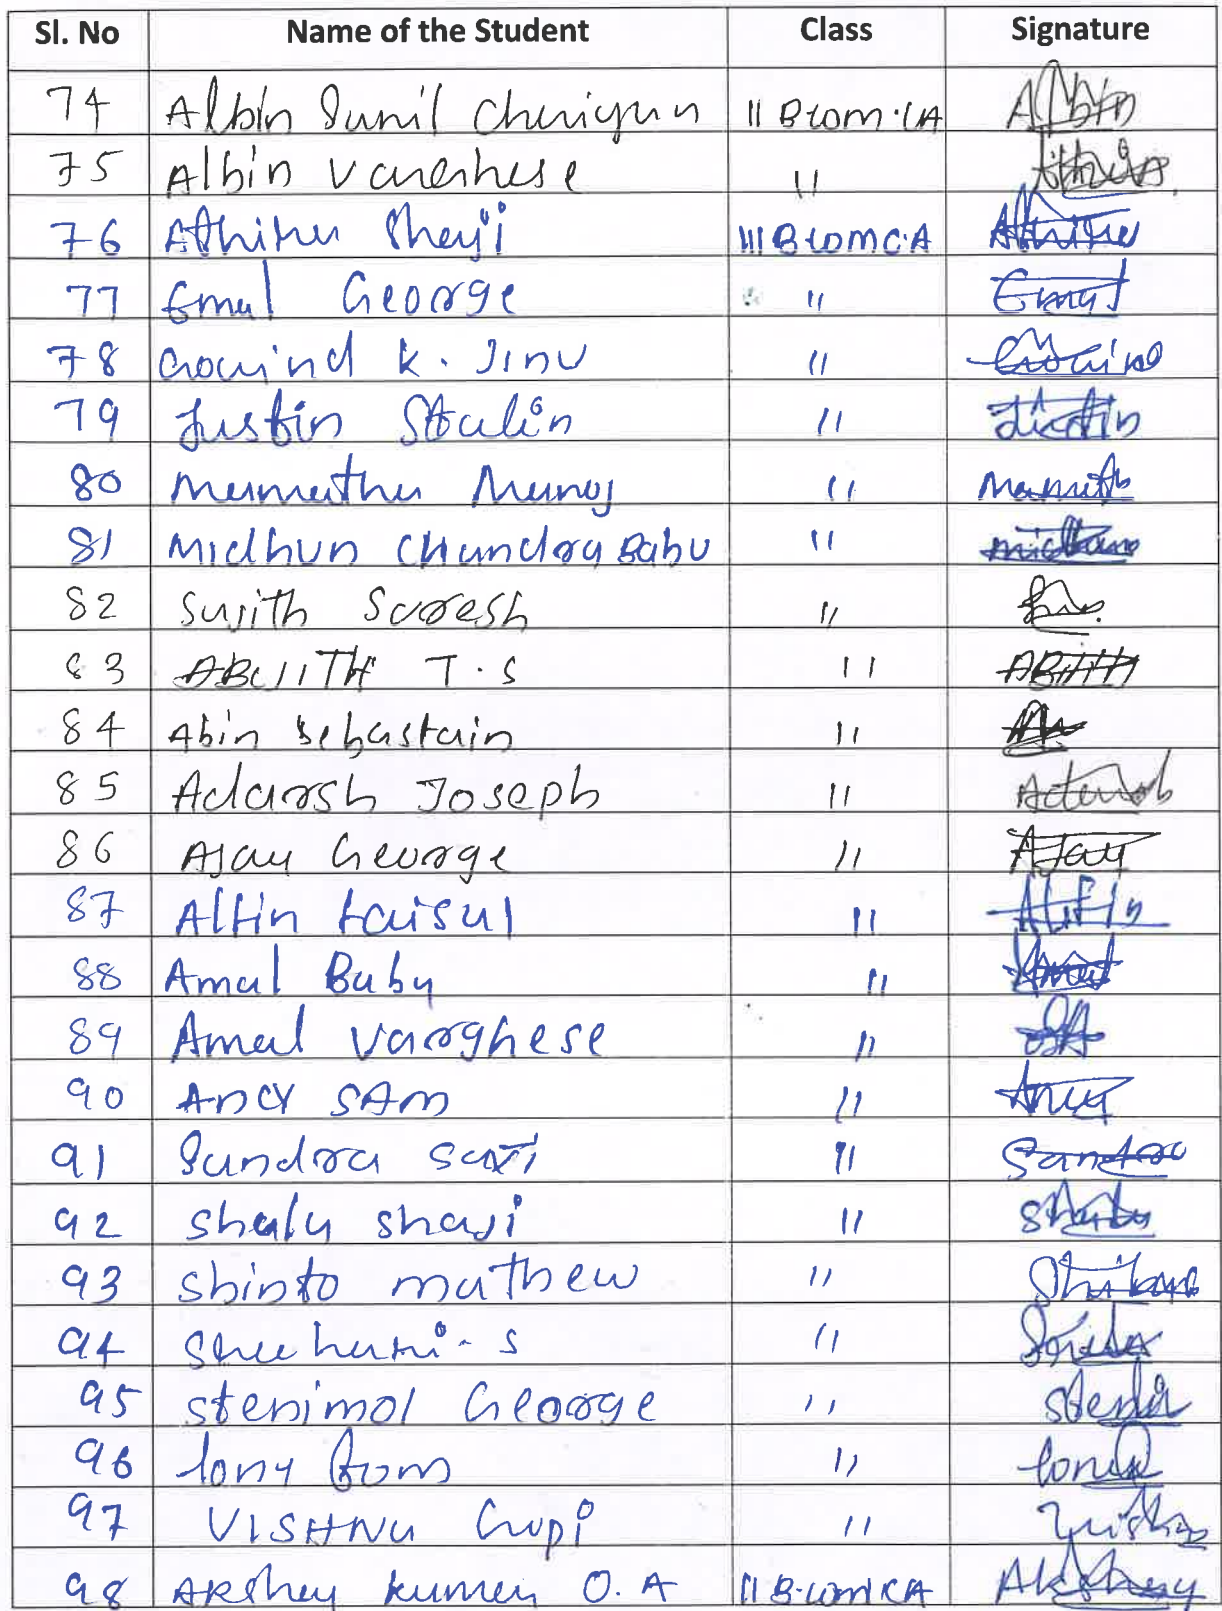 Sl. No Name of the Student Class Signature
74 Albin Sunil Cheriyan II B.com.CA Albin
75 Albin Varghese "
76 Athira Shaji III B.comC.A Athira
77 Emal George " Emal
78 Govind K. Jinu " Govind
79 Justin Stalin " Justin
80 Mamatha Manoj " Mamatha
81 Midhun Chandra Babu " midhun
82 Sujith Suresh "
83 ABIJITH T.S "
84 Abin Sebastain "
85 Adarsh Joseph " Adarsh
86 Ajay George " AJay
87 Alfin faisal " Alfin
88 Amal Baby " Amal
89 Amal Varghese "
90 Ancy SAm " Ancy
91 Sandra " Sandra
92 Shalu shaji "
93 shinto mathew "
94 Sreehari. S "
95 stenimol George "
96 Tony "
97 VISHNU Gopi "
98 Akshay Kumar O.A II B.com CA Akshay